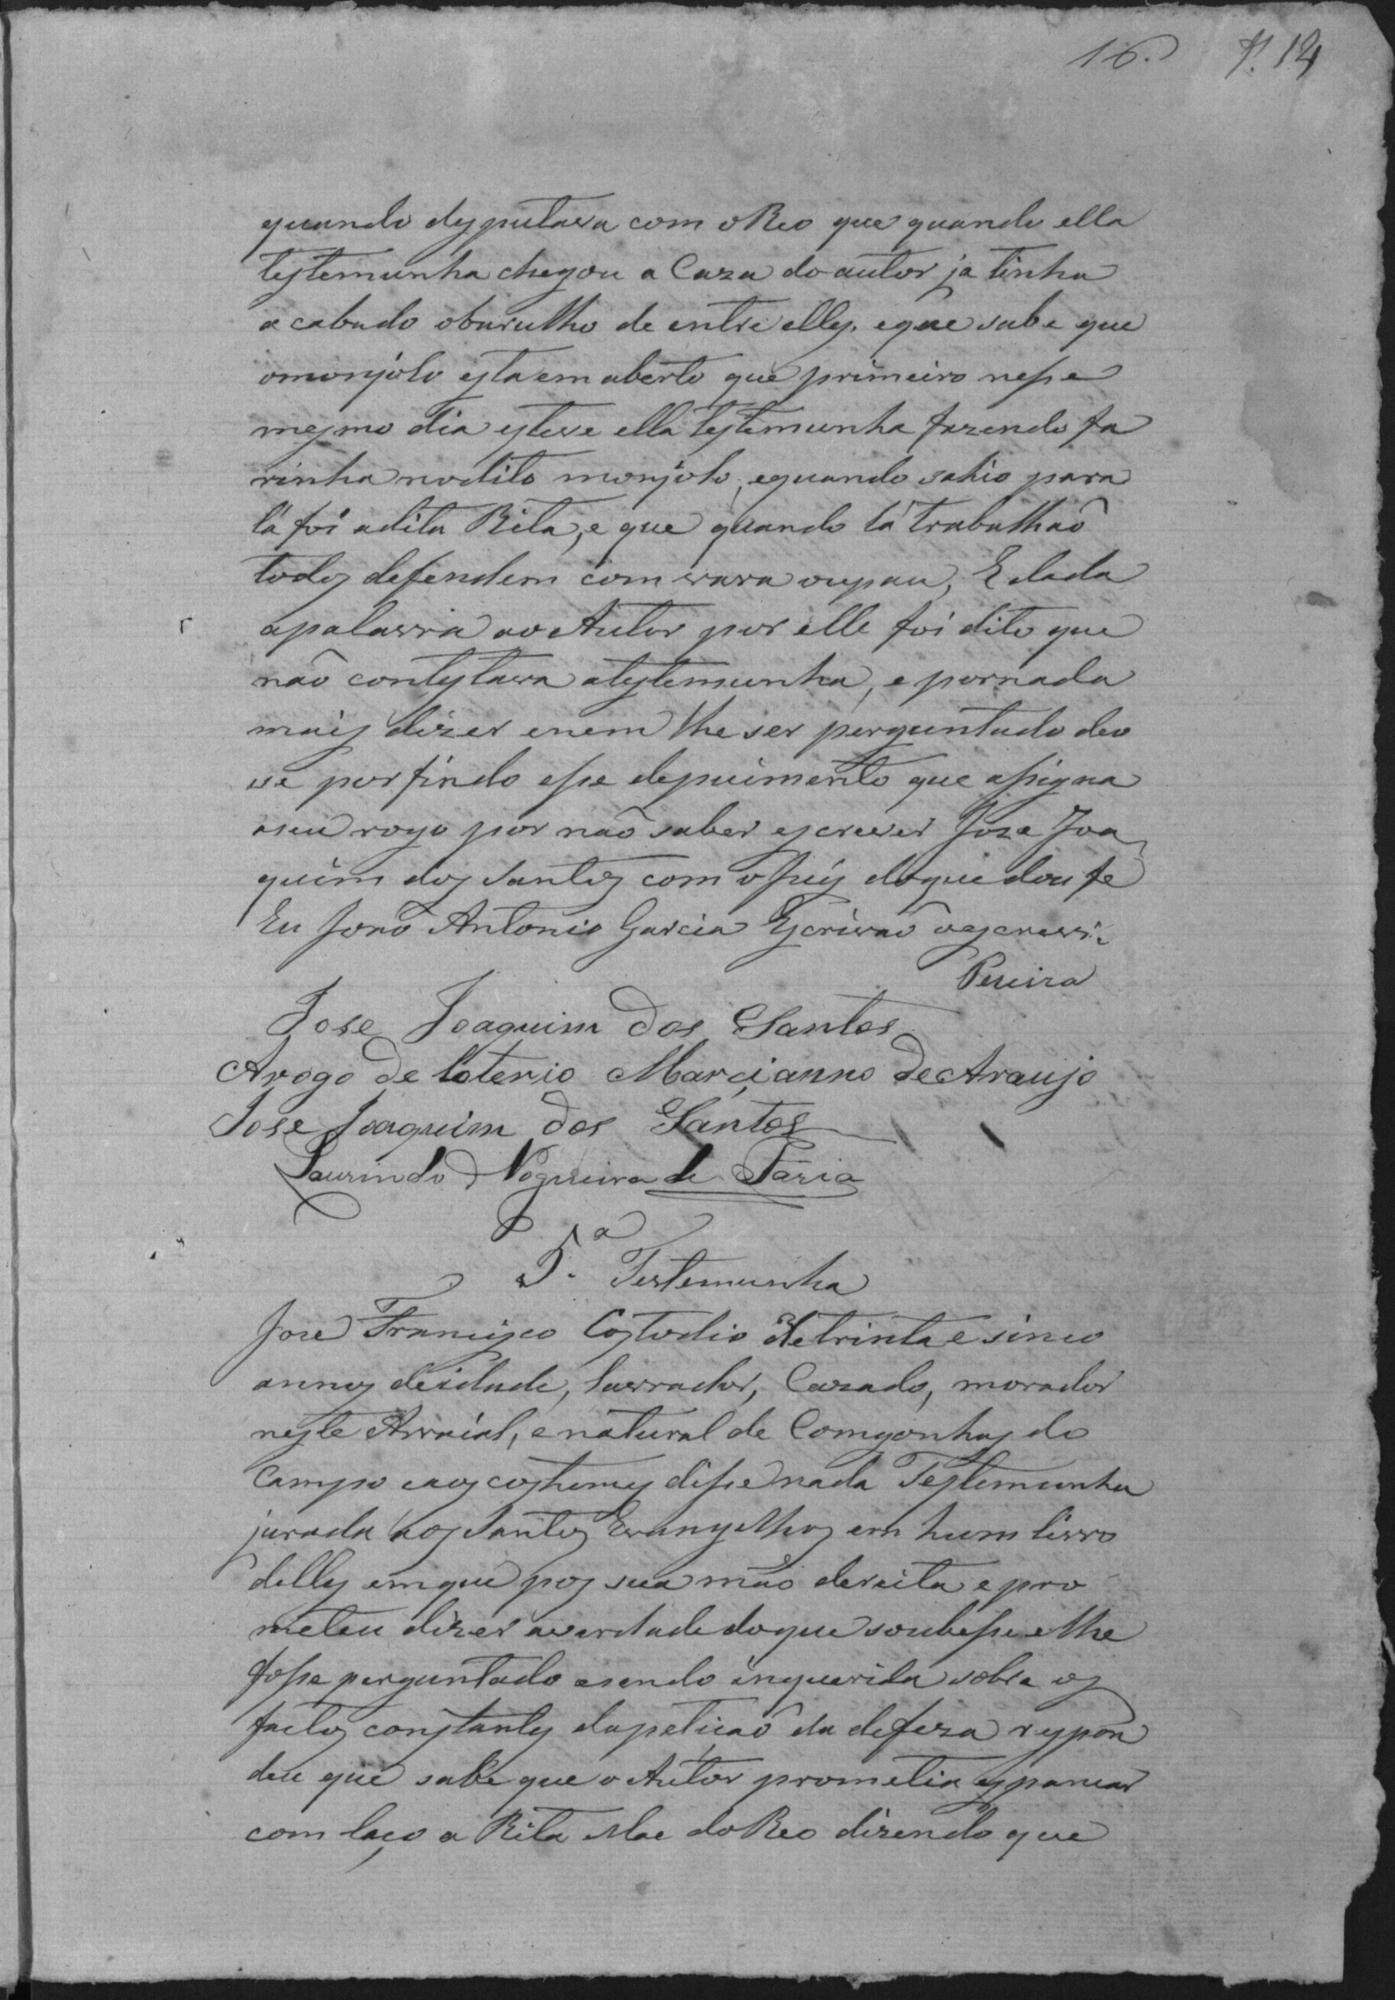 16. F. 14
quando desputava com o Reo que quando ella
testemunha chegou a Caza do autor ja tinha
acabado obarulho de entre elles, eque sabe que
omonjolo esta em aberto que primeiro nesse
mesmo dia esteve ella testemunha fazendo fa
rinha nodito monjolo, equando sahio para
lá foi adita Rita, e que quando lá trabalhaõ
todos defendem com vara oupau, E dada
apalavra ao Autor por elle foi dito que
não contestava atestemunha, e pornada
mais dizer enem lhe ser perguntado deo
se porfindo esse depuimento que assigna
aseu rogo por não saber escrever Joze Joa
quim dos Santos com oJuis doque dou fe
Eu Joaõ Antonio Garcia Escrivaõ oescrevi.
Pereira
Jose Joaquim Dos Santos
Arogo de Loterio Marcianno de Araujo
Jose Joaquim Dos Santos
Laurindo Nogueira de Faria
5.ª Testemunha
Joze Francisco Costodio de trinta e sinco
annos deidade, lavrador, Cazado, morador
neste Arraial, e natural de Comgonhas do
Campo eaos costumes disse nada Testemunha
jurada aos Santos Evangelhos em hum livro
delles emque pos sua mão dereita epro
meteu dizer averdade doque soubesse elhe
fosse perguntado esendo inquerida sobre os
factos constantes dapeticaõ da defeza respon
deu que sabe que o Autor prometia espancar
com laço a Rita Mae do Reo dizendo que